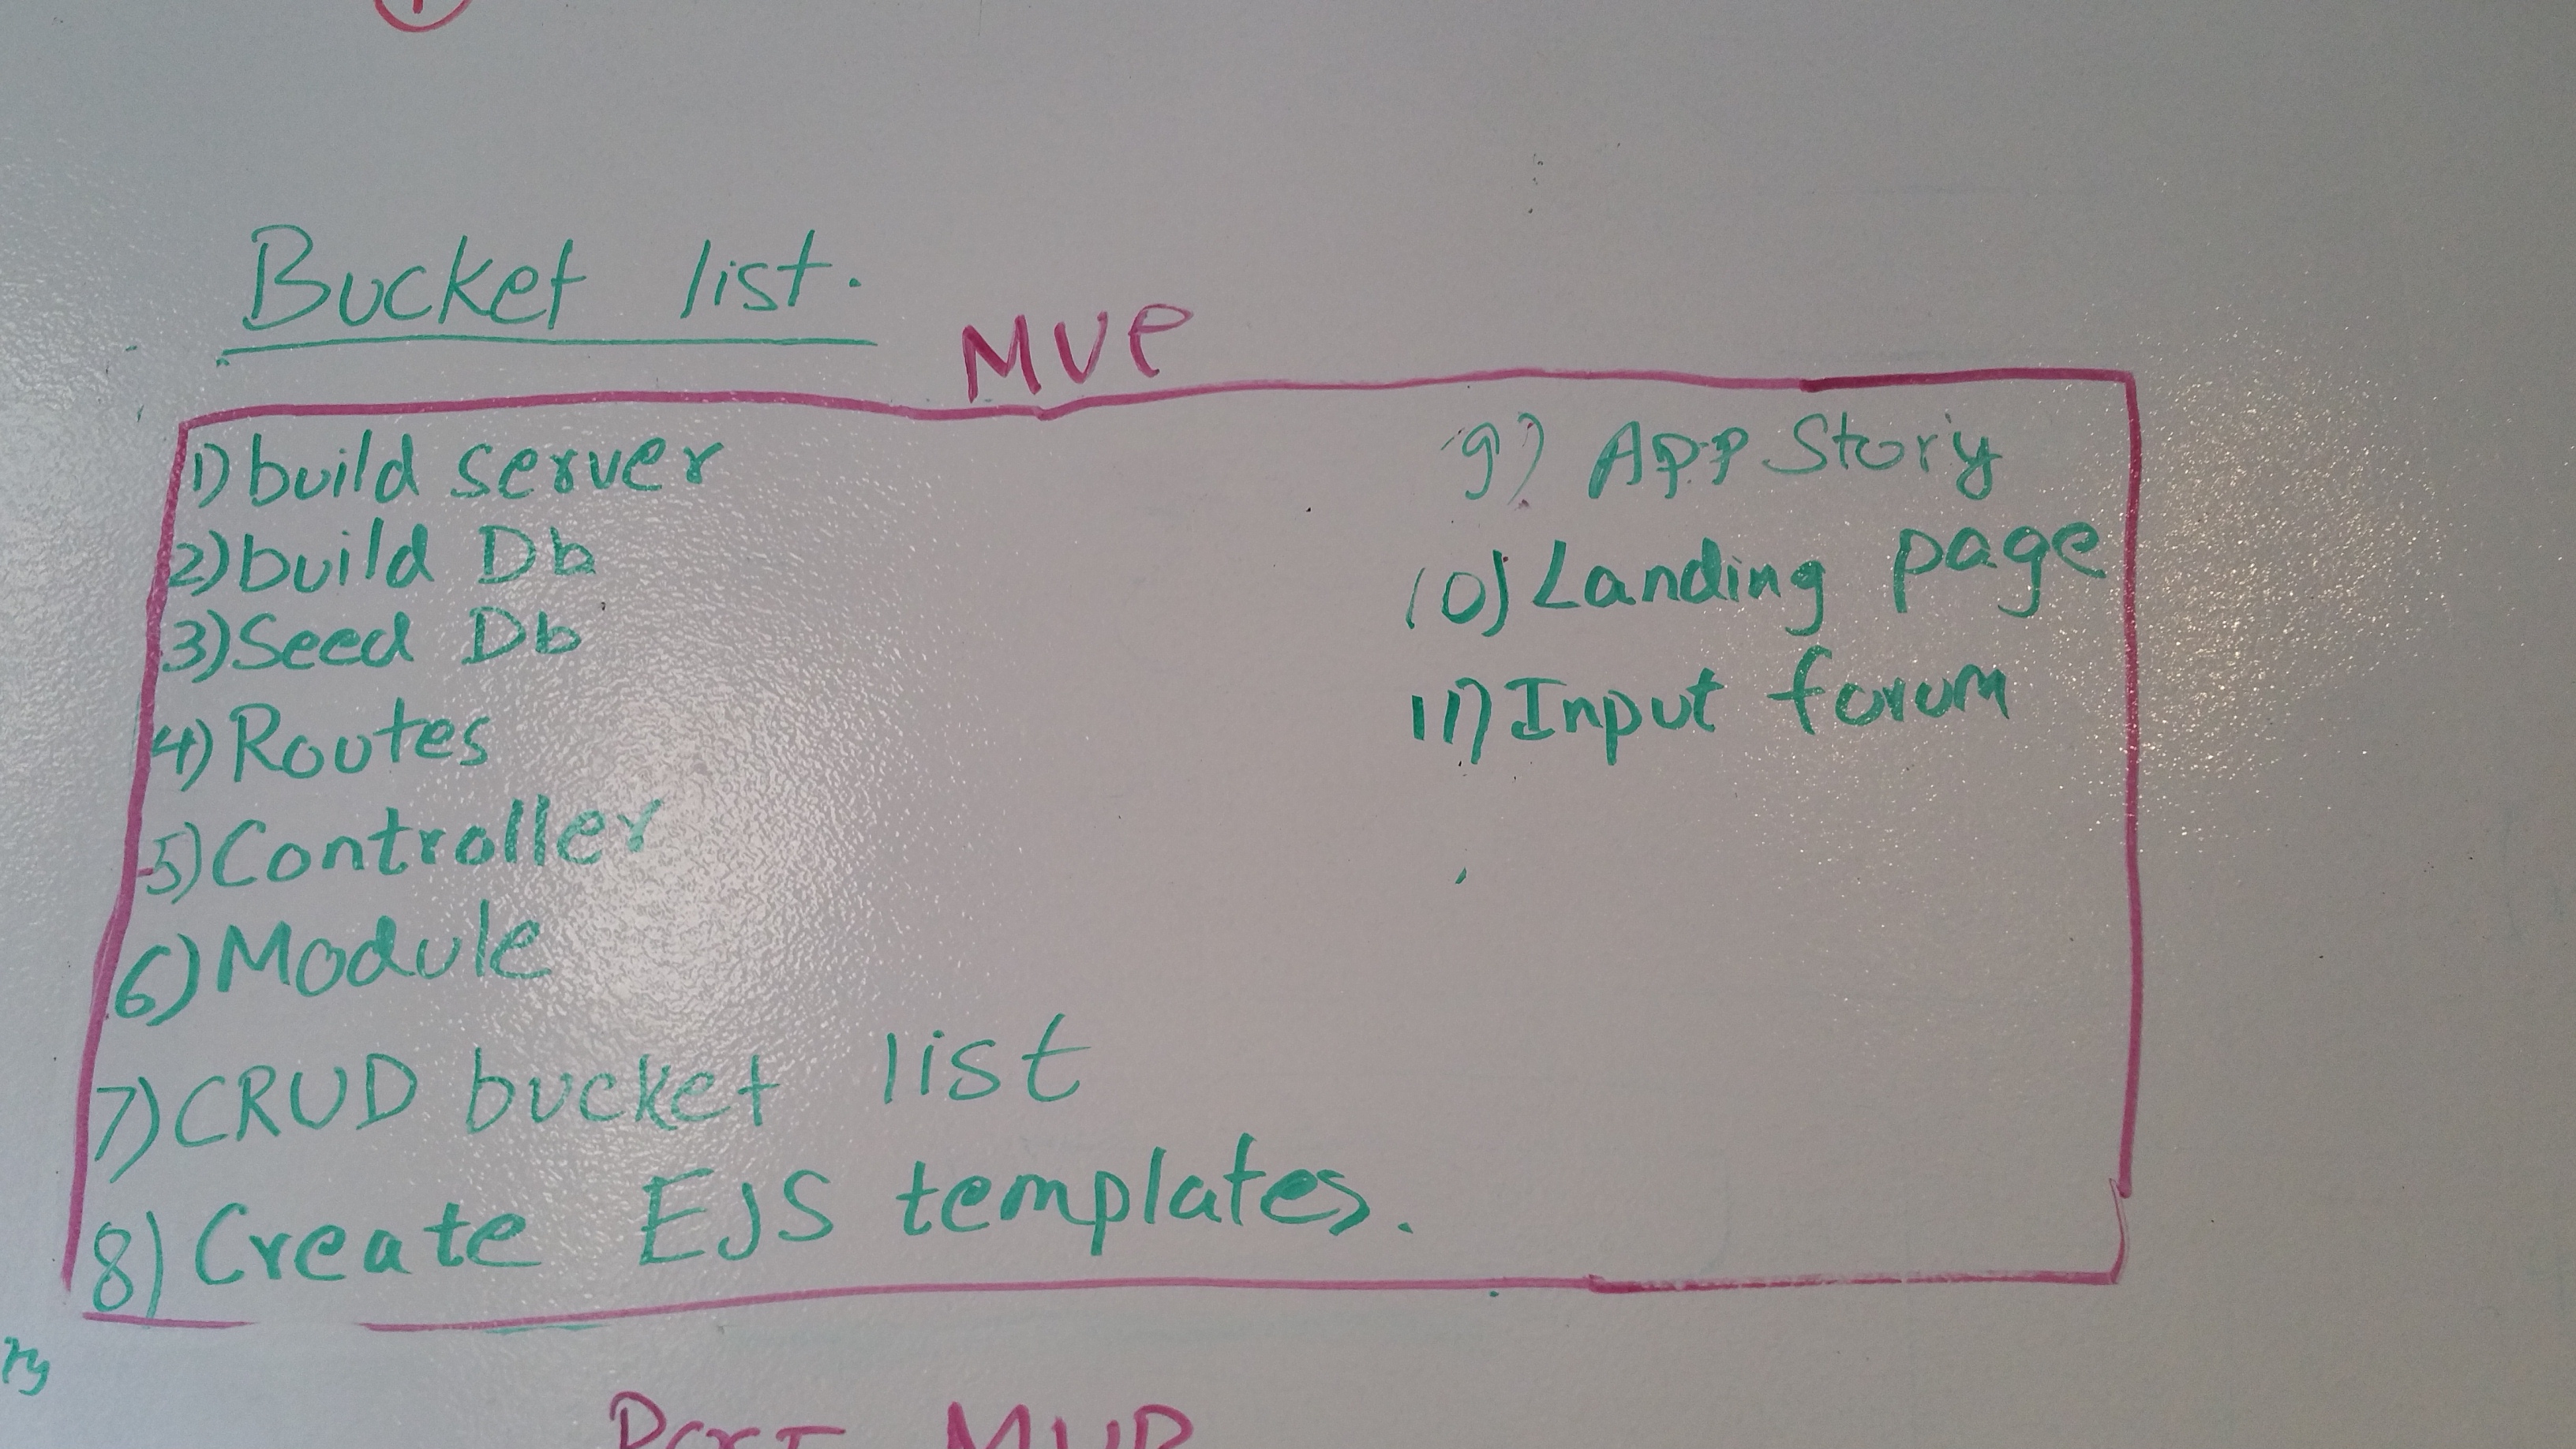 Bucket list.
MVP
1) build server
2) build Db
3) Seed Db
4) Routes
5) Controller
6) Module
7) CRUD bucket list
8) Create EJS templates.
9) App Story
10) Landing page
11) Input forum
Post MVP